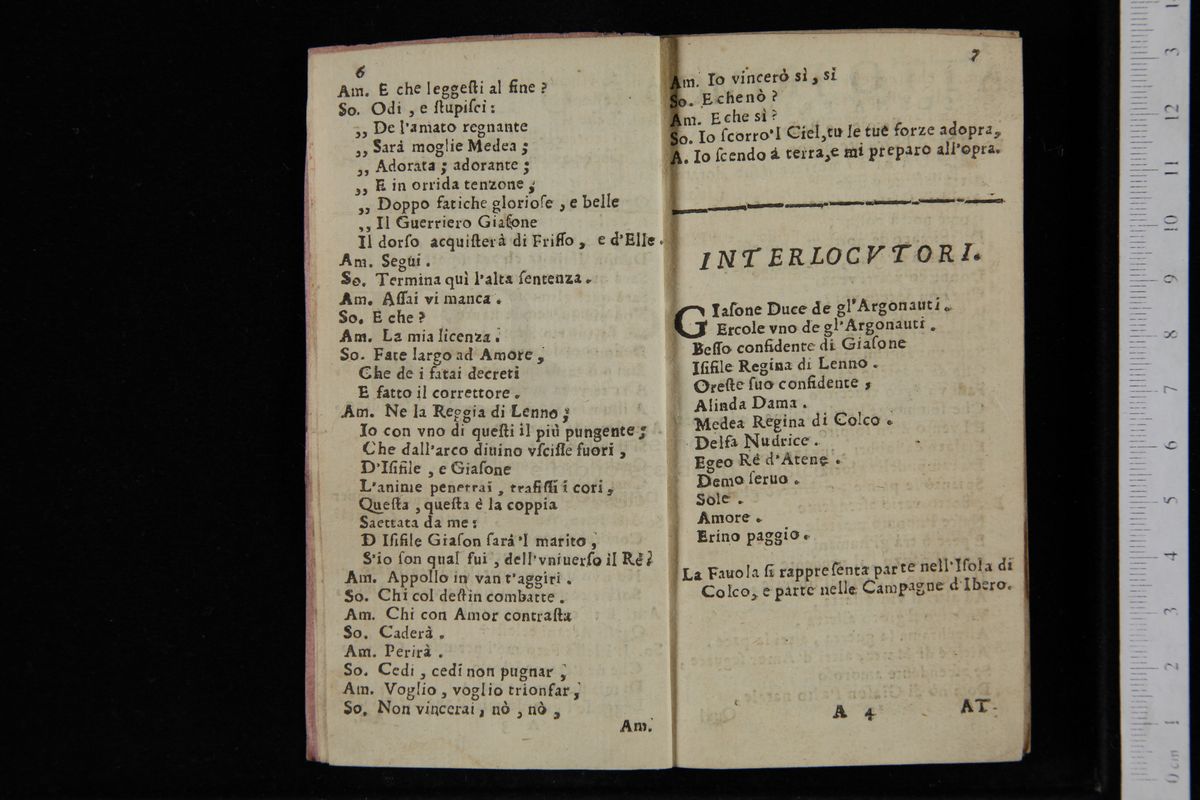 6
Am. E che leggeſti al fine ?
So. Odi , e ſtupiſci :
,, De l'amato regnante
,, Sarà moglie Medea ;
,, Adorata ; adorante ;
,, E in orrida tenzone ;
,, Doppo fatiche glorioſe , e belle
,, Il Guerriero Giaſone
Il dorſo acquiſterà di Friſſo , e d'Elle .
Am. Segui .
So. Termina quì l'alta ſentenza .
Am. Aſſai vi manca .
So. E che ?
Am. La mia licenza .
So. Fate largo ad Amore ,
Che de i fatai decreti
E fatto il correttore .
Am. Ne la Reggia di Lenno ;
Io con vno di queſti il più pungente ;
Che dall'arco diuino vſciſſe fuori ,
D'Iſifile , e Giaſone
L'anime penetrai , trafiſſi i cori ,
Queſta , queſta è la coppia
Saettata da me :
D Iſifile Giaſon ſarà 'l marito ,
S'io ſon qual fui , dell'vniuerſo il Rè ?
Am. Appollo in van t'aggiri .
So. Chi col deſtin combatte .
Am. Chi con Amor contraſta
So. Caderà .
Am. Perirà .
So. Cedi , cedi non pugnar ,
Am. Voglio , voglio trionfar ,
So. Non vincerai , nò , nò ,
Am.
7
Am. Io vincerò sì , sì
So. E che nò ?
Am. E che sì ?
So. Io ſcorro 'l Ciel, tu le tue forze adopra,
A. Io ſcendo à terra, e mi preparo all'opra.
INTERLOCVTORI.
GIaſone Duce de gl'Argonauti .
Ercole vno de gl'Argonauti .
Beſſo confidente di Giaſone
Iſifile Regina di Lenno .
Oreſte ſuo confidente ,
Alinda Dama .
Medea Regina di Colco .
Delfa Nudrice .
Egeo Rè d'Atene .
Demo ſeruo .
Sole .
Amore .
Erino paggio .
La Fauola ſi rappreſenta parte nell'Iſola di
Colco, e parte nelle Campagne d'Ibero.
A 4 AT-